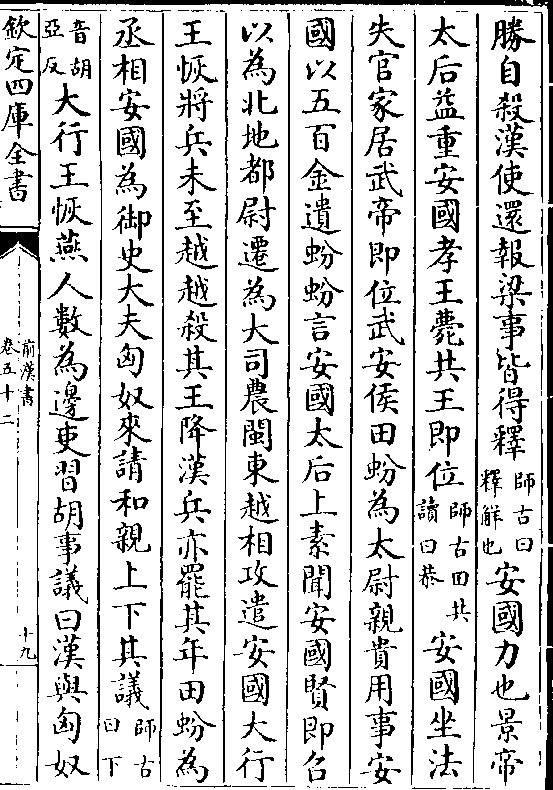 勝自殺漢使還報梁事皆得釋師古曰釋解也安國力也景帝
太后益重安國孝王薨共王即位師古曰共讀曰恭安國坐法
失官家居武帝即位武安侯田蚡為太尉親貴用事安
國以五百金遺蚡蚡言安國太后上素聞安國賢即召
以為北地都尉遷為大司農閩東越相攻遣安國大行
王恢將兵未至越越殺其王降漢兵亦罷其年田蚡為
丞相安國為御史大夫匈奴來請和親上下其議師古曰下
音胡亞反大行王恢燕人數為邊吏習胡事議曰漢與匈奴
欽定四庫全書
前漢書
卷五十二
十九